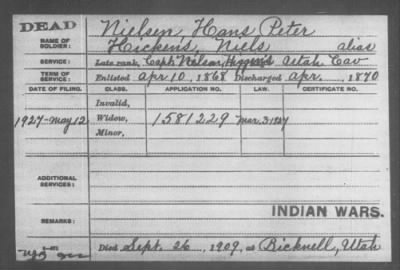 DEAD
NAME OF SOLDIER: Nielsen, Hans Peter
Hickens, Niels alias
SERVICE: Late rank, Capt. Nelson Utah Cav
TERM OF SERVICE: Enlisted apr 10, 1868 Discharged apr , 1870
DATE OF FILING. CLASS. APPLICATION NO. LAW. CERTIFICATE NO.
Invalid,
1927-May 12 Widow, 1581229 Mar. 3 1927
Minor,
ADDITIONAL SERVICES:
INDIAN WARS.
REMARKS:
Died Sept. 26, 1909, at Bicknell, Utah